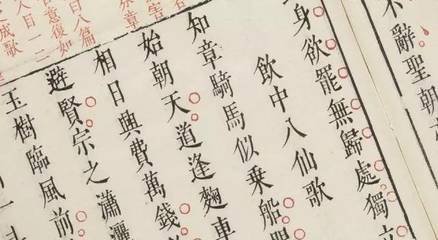 不辭聖朝
身欲罷無歸處獨
飲中八仙歌
知章騎馬似乘船
始朝天道逢麴車
相日興費萬錢
避賢宗之瀟灑
玉樹臨風前
八篇
人日一二